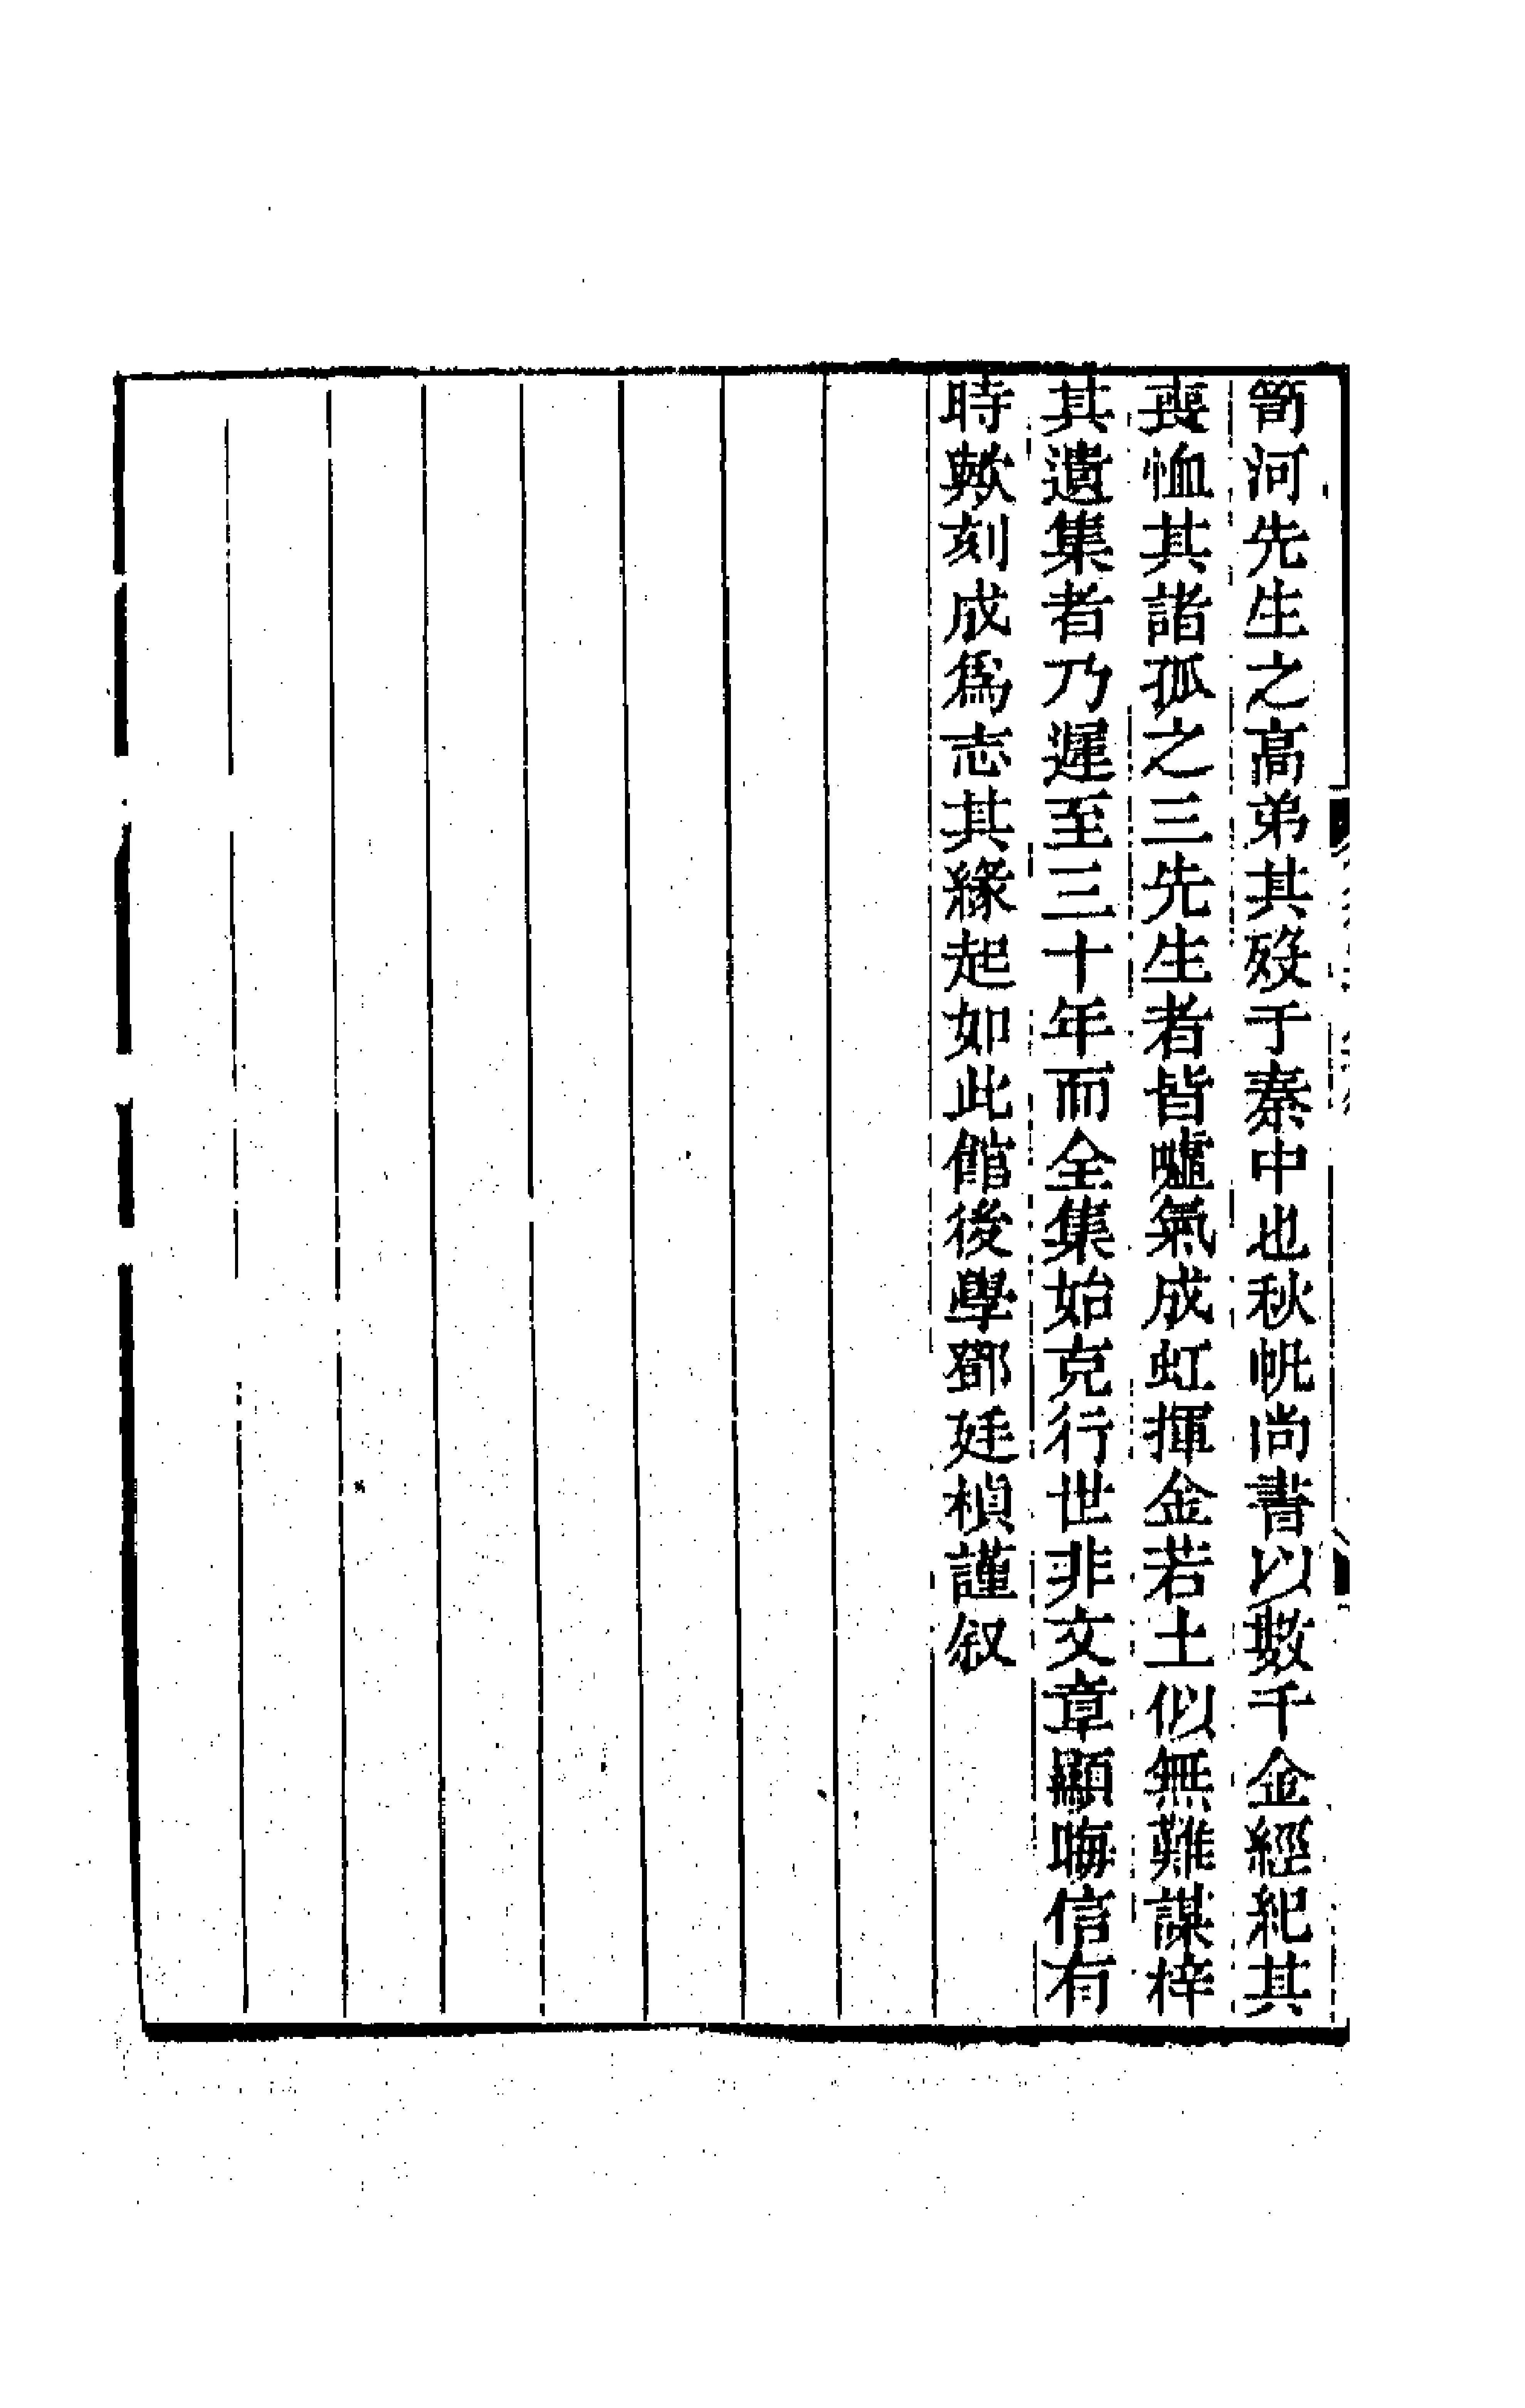 笥河先生之高弟其歿于秦中也秋帆尚書以數千金經紀其
喪恤其諸孤之三先生者皆噓氣成虹揮金若土似無難謀梓
其遺集者乃遲至三十年而全集始克行世非文章顯晦信有
時歟刻成爲志其緣起如此館後學鄧廷楨謹叙